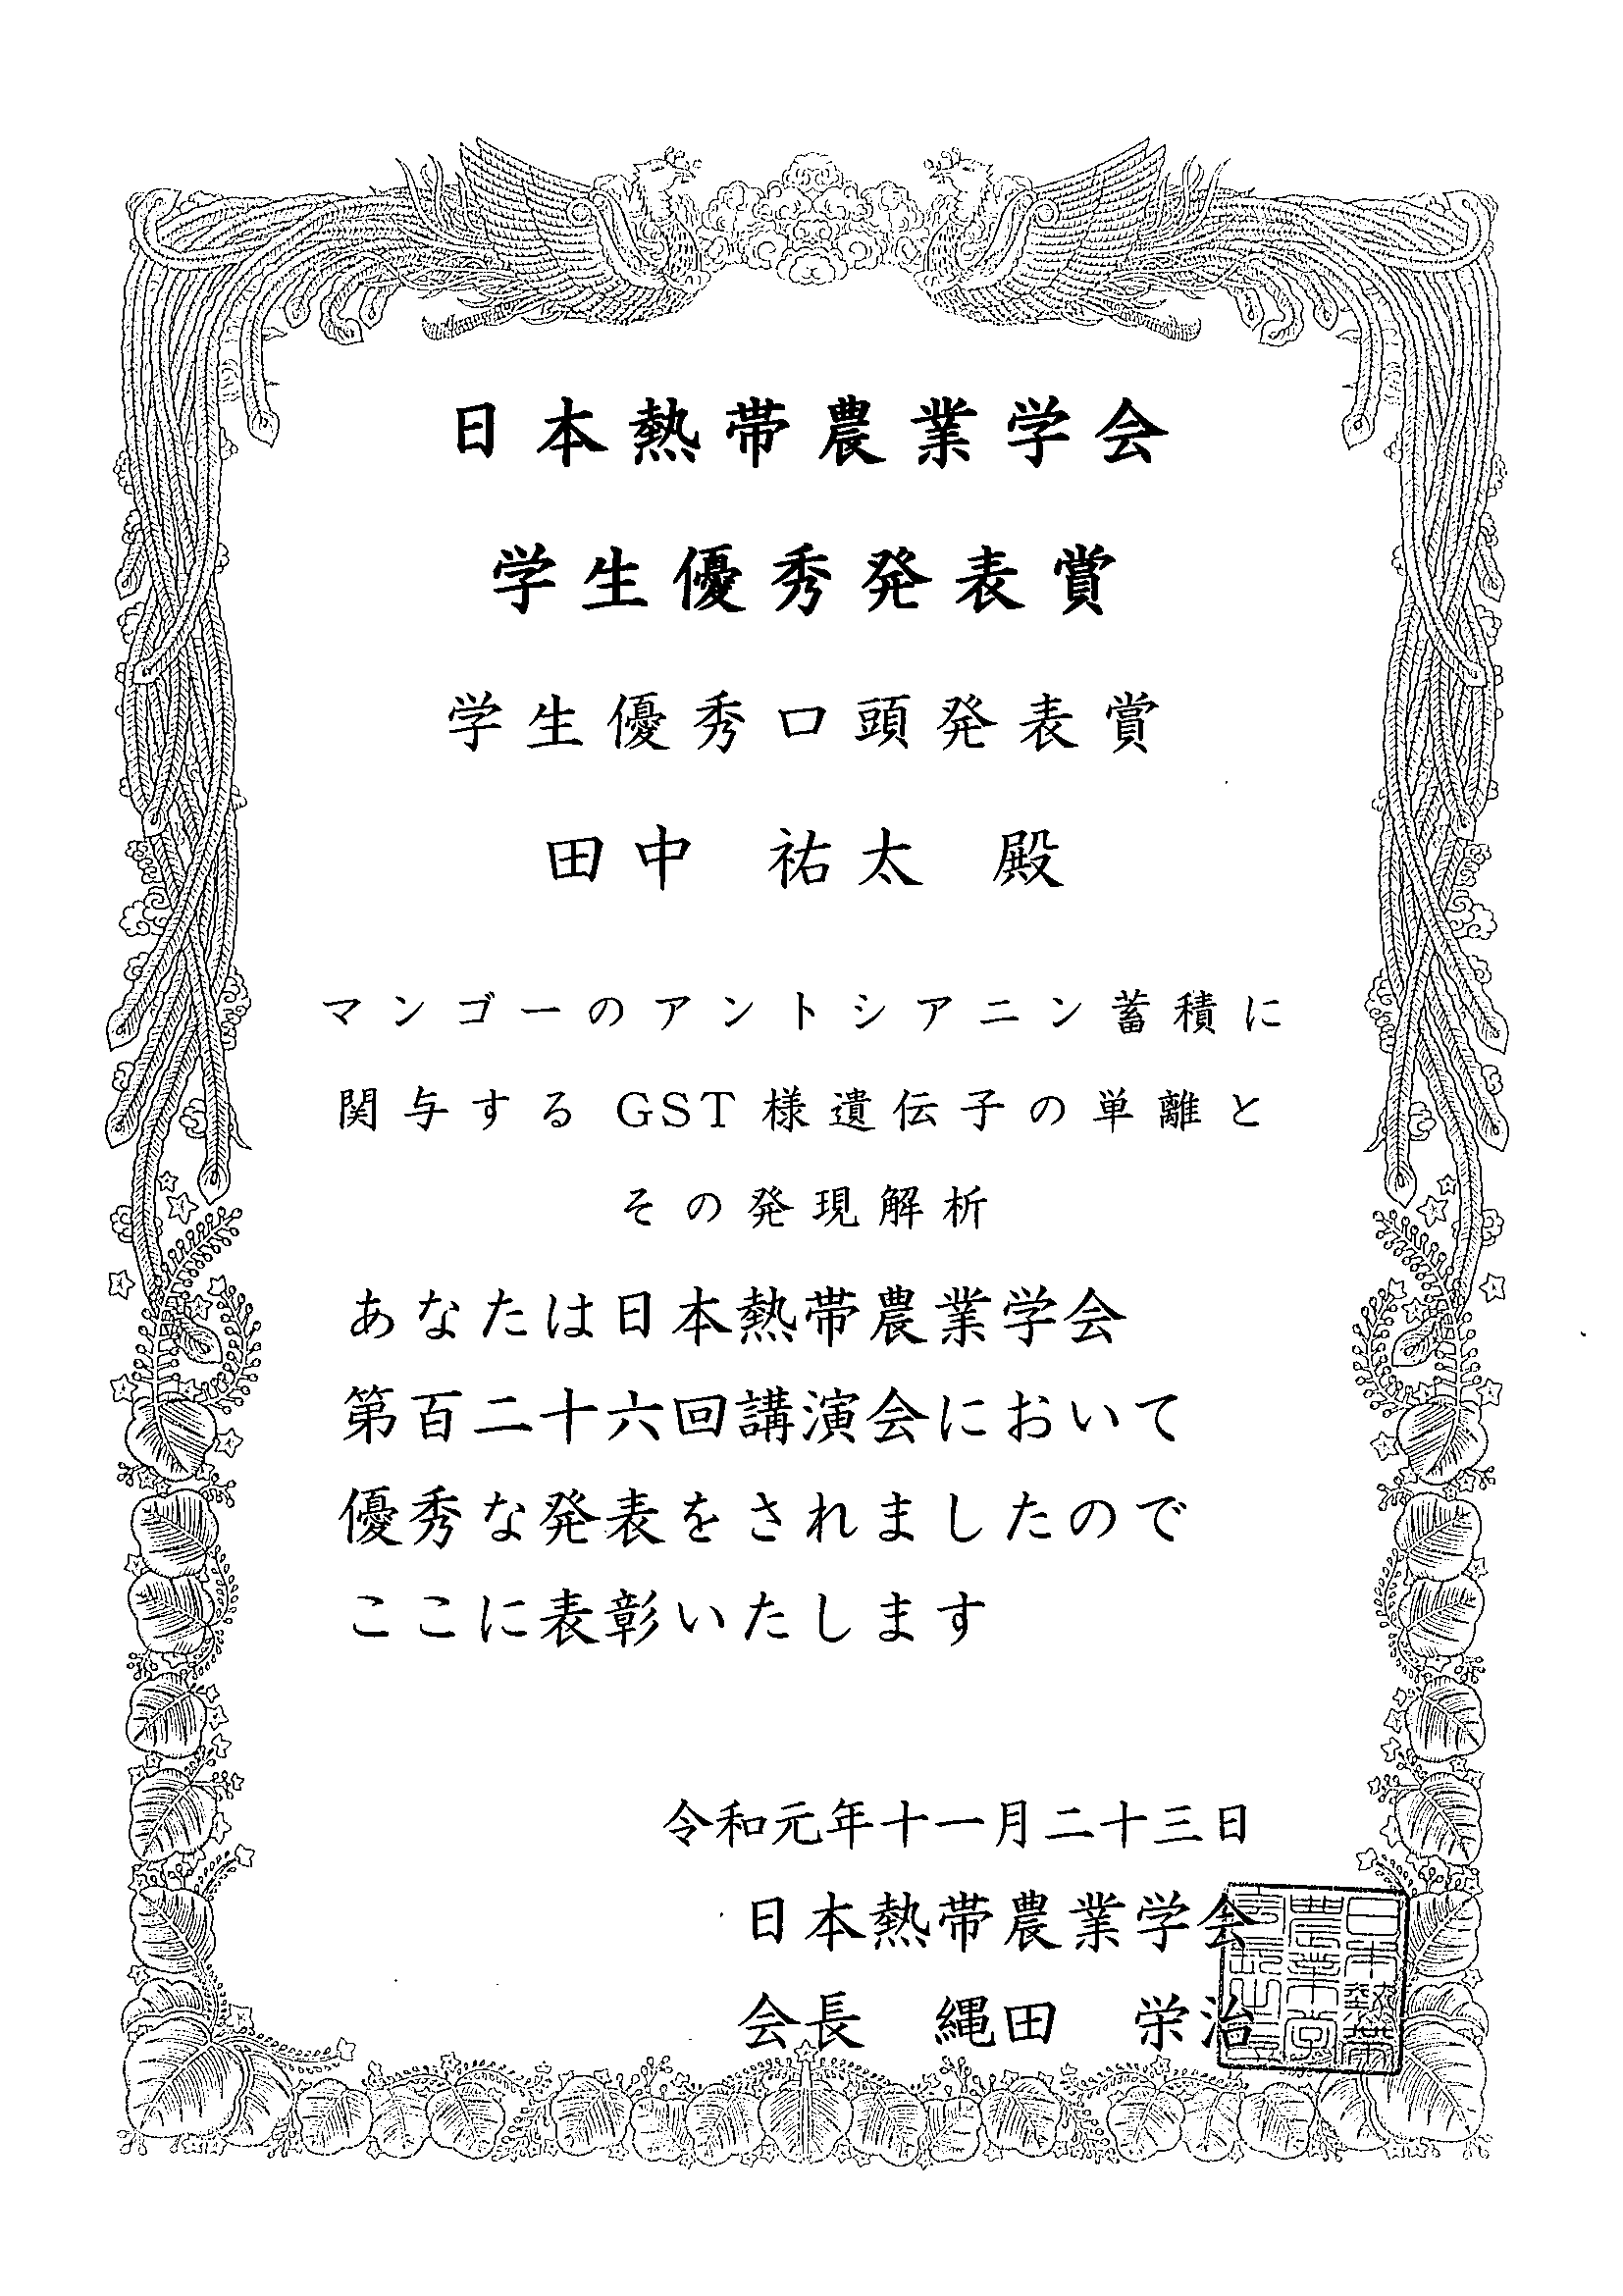 日本熱帯農業学会
学生優秀発表賞
学生優秀口頭発表賞
田中 祐太 殿
マンゴーのアントシアニン蓄積に
関与する GST 様遺伝子の単離と
その発現解析
あなたは日本熱帯農業学会
第百二十六回講演会において
優秀な発表をされましたので
ここに表彰いたします
令和元年十一月二十三日
日本熱帯農業学会
会長 縄田 栄治